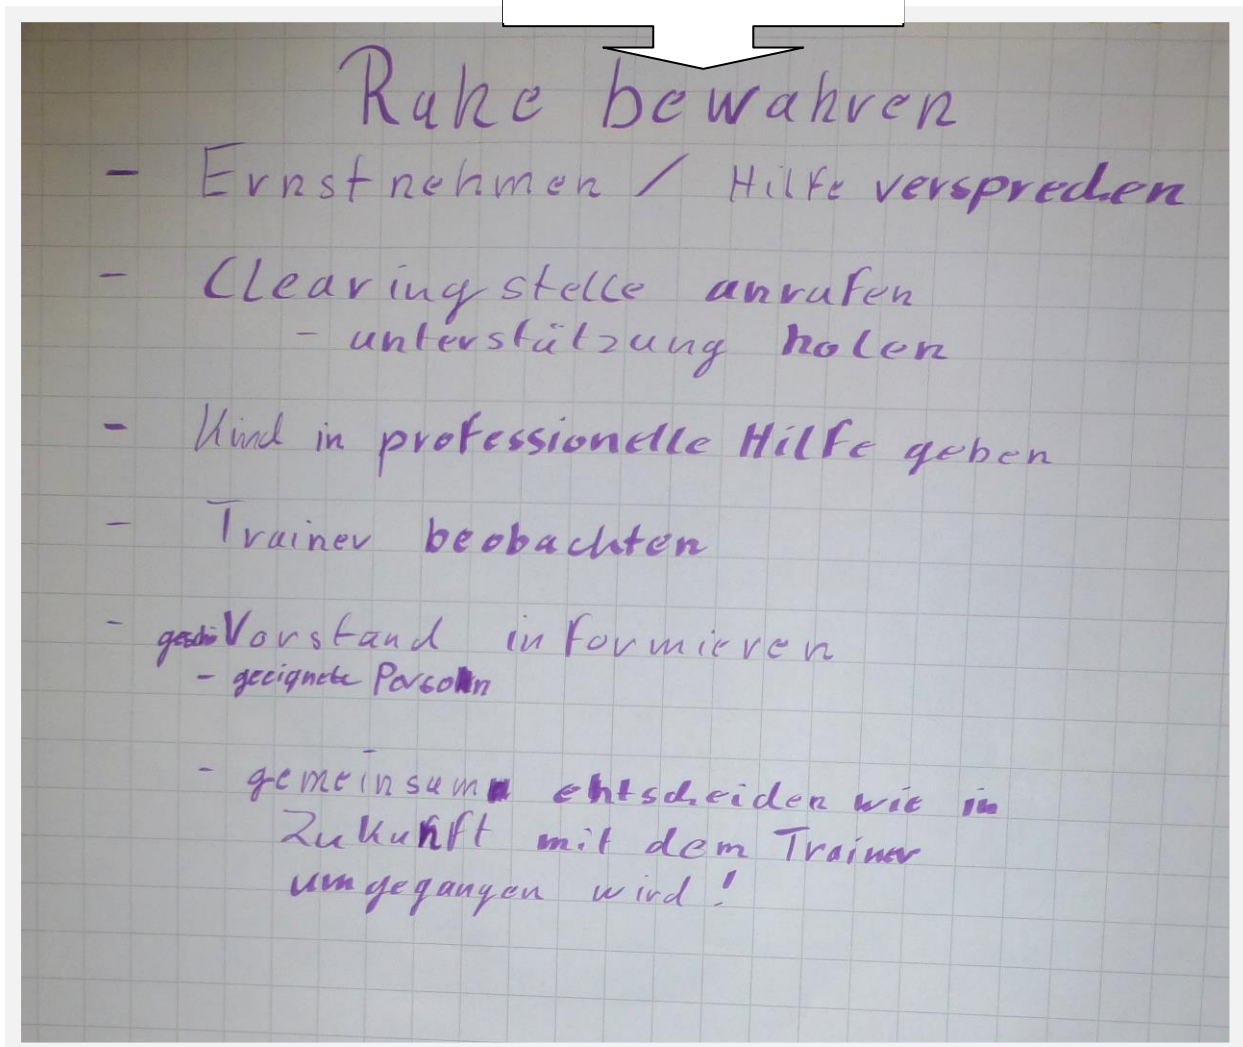 Ruhe bewahren
- Ernstnehmen / Hilfe versprechen
- Clearingstelle anrufen
- unterstützung holen
- Kind in professionelle Hilfe geben
- Trainer beobachten
- Vorstand informieren
- geeignete Person
- gemeinsam entscheiden wie in
Zukunft mit dem Trainer
umgegangen wird!